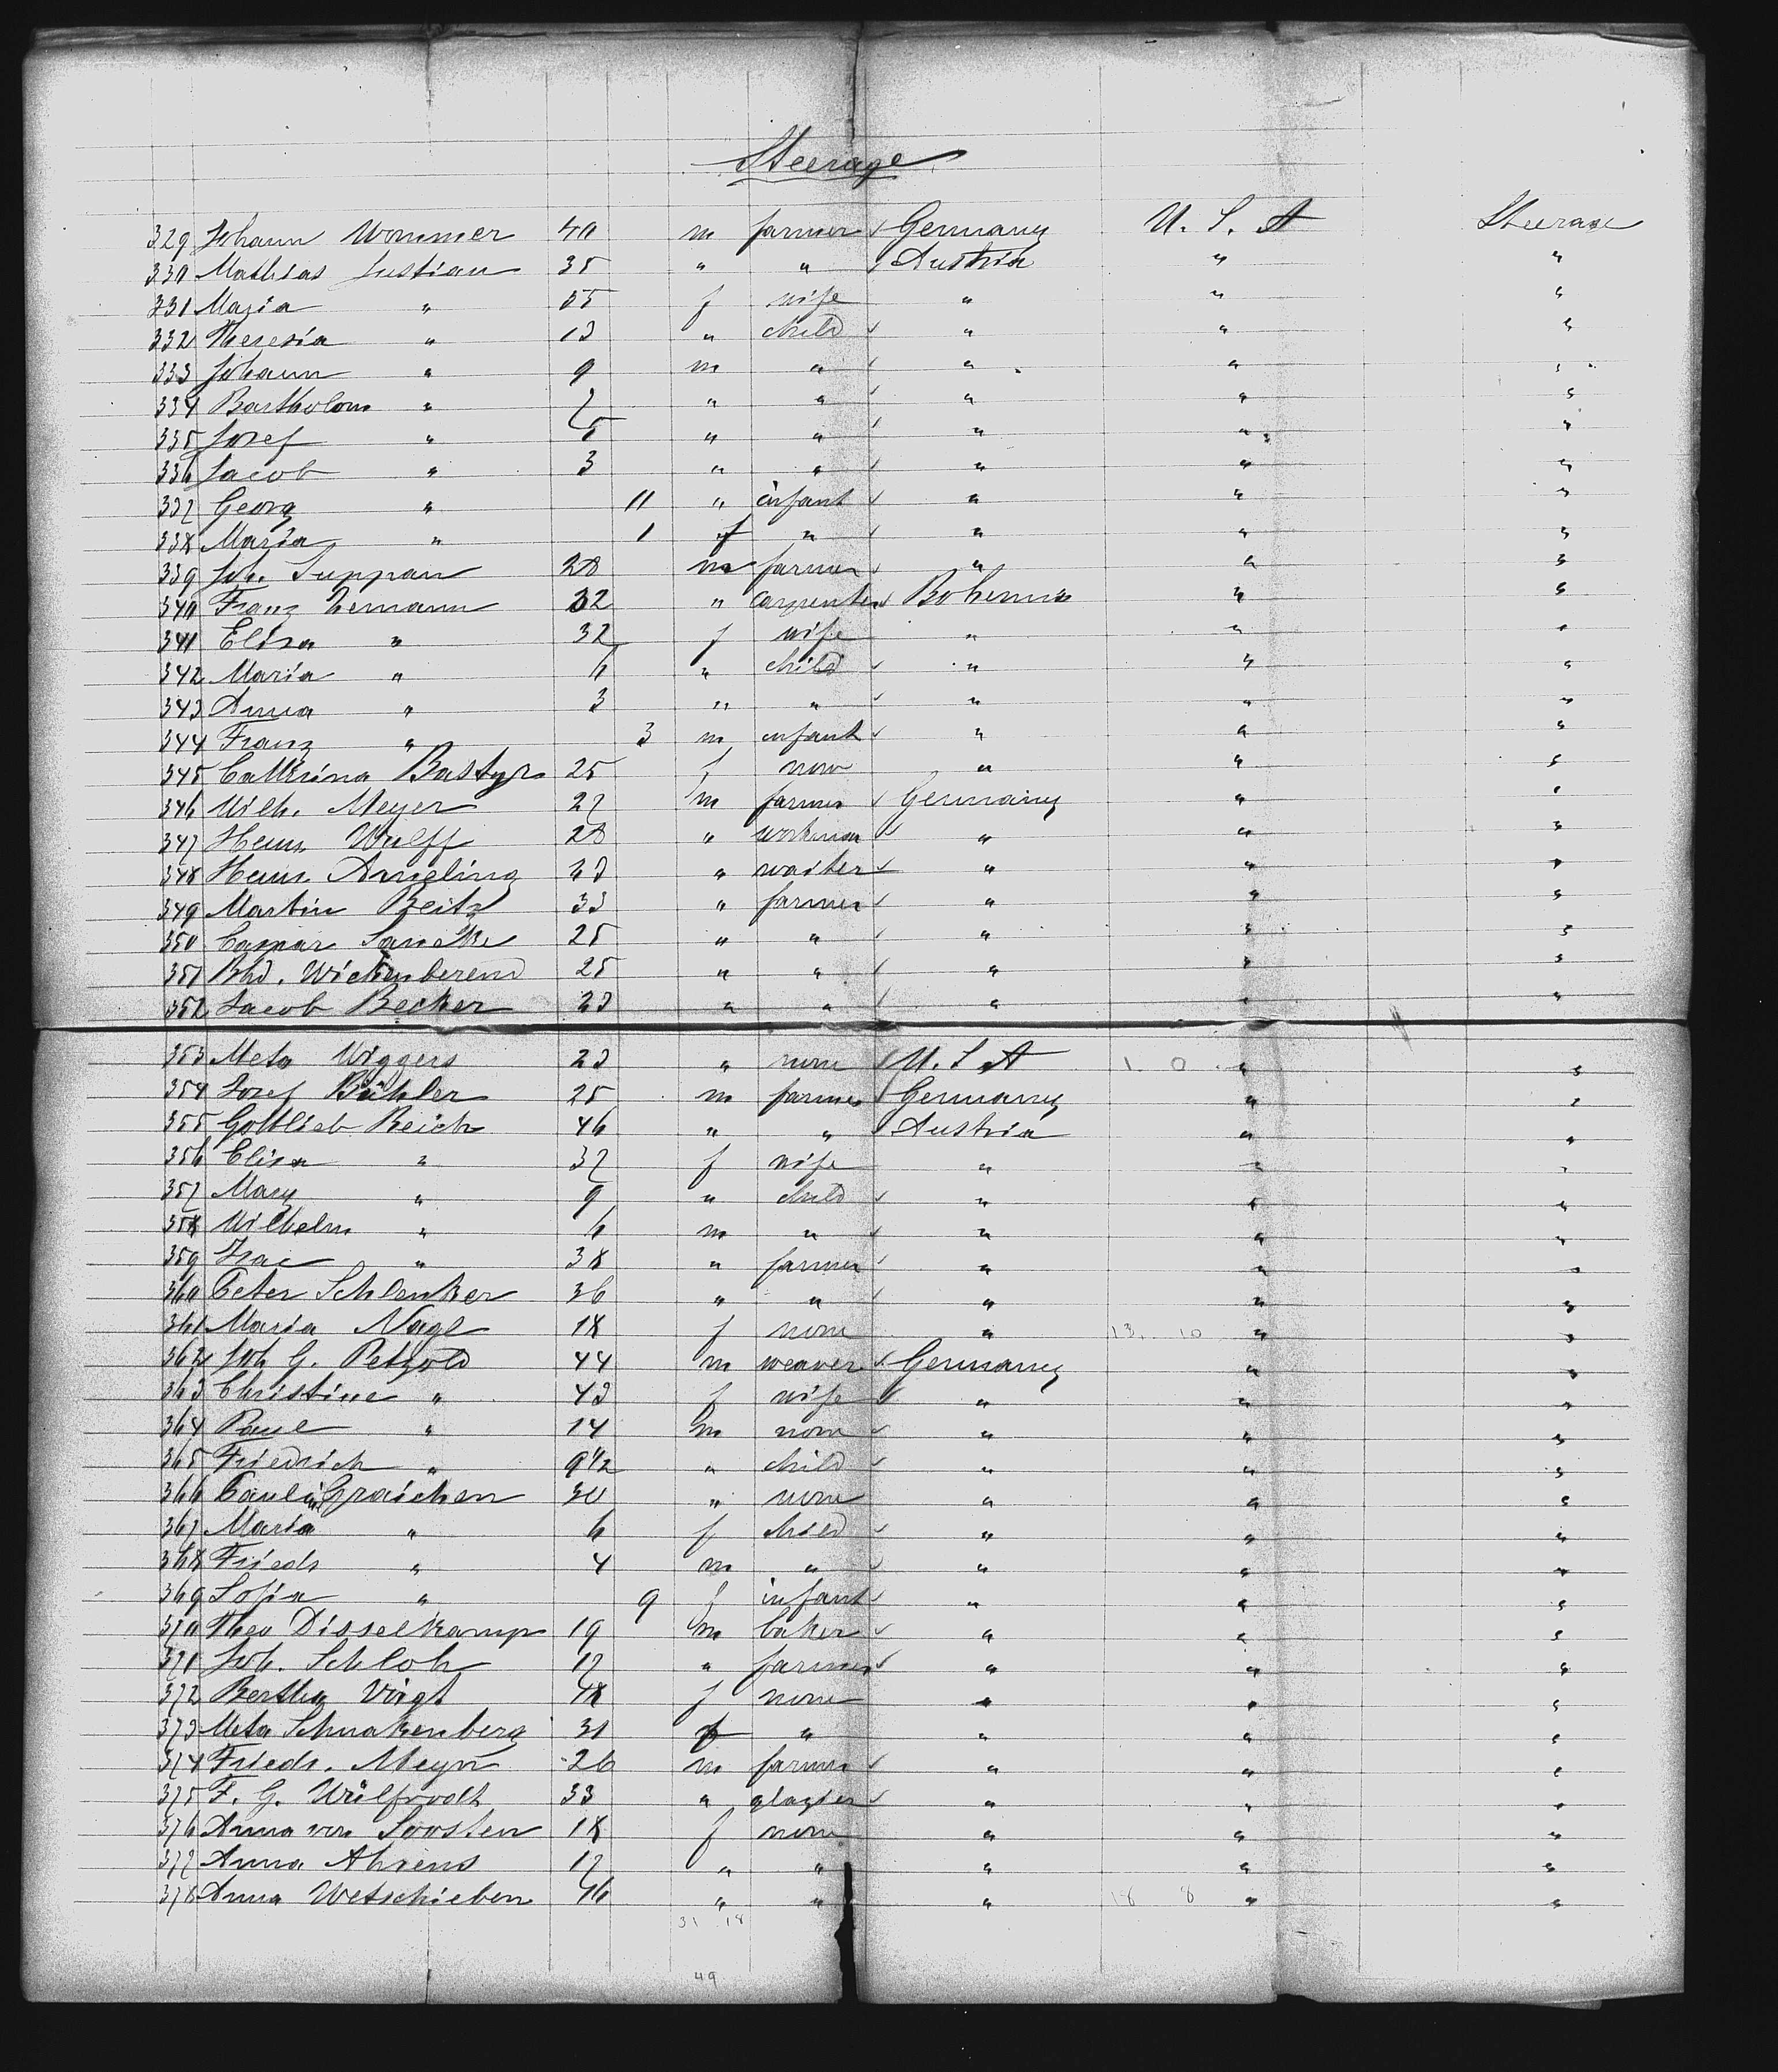 Steerage
329 Johann Wommer 40 m farmer Germany U. S. A Steerage
330 Mathias Sustian 35 " " Austria " "
331 Maria " 35 f wife " " "
332 Theresia " 13 " child " " "
333 Johann " 9 m " " " "
334 Bartholom " 7 " " " " "
335 Josef " 5 " " " " "
336 Jacob " 3 " " " " "
337 Georg " 11 " infant " " "
338 Maria " 1 f " " " "
339 Joh. Suppan 28 m farmer " " "
340 Franz Zemann 32 " carpenter Bohemia " "
341 Elisa " 32 f wife " " "
342 Maria " 6 " child " " "
343 Anna " 3 " " " " "
344 Franz " 3 m infant " " "
345 Catherina Bastyr 25 f none " " "
346 Wilh. Meyer 27 m farmer Germany " "
347 Heinr. Wulff 28 " workman " " "
348 Heinr. Angeling 23 " waiter " " "
349 Martin Beitz 33 " farmer " " "
350 Caspar 25 " " " " "
351 Bhd. Wichenberend 25 " " " " "
352 Jacob Becker 23 " " " " "
353 Meta Wiggers 23 " none U. S. A 1. 0 " "
354 Josef Bühler 25 m farmer Germany " "
355 Gottlieb Reich 46 " " Austria " "
356 Elisa " 37 f wife " " "
357 Mary " 9 " child " " "
358 Wilhelm " 6 m " " " "
359 Isac " 38 " farmer " " "
360 Peter Schlenker 36 " " " " "
361 Maria Nagl 18 f none " 13. 10 " "
362 Joh G. Petzold 44 m weaver Germany " "
363 Christine " 43 f wife " " "
364 Paul " 14 m none " " "
365 Friedrich " 9½ " child " " "
366 Paulina Graichen 30 " none " " "
367 Maria " 6 f child " " "
368 Friedr " 4 m " " " "
369 Sofia " 9 f infant " " "
370 Theo Disselkamp 19 m baker " " "
371 Joh. Schloh 17 " farmer " " "
372 Bertha Voigt 48 f none " " "
373 Meta Schnakenberg 31 f " " " "
374 Friedr. Meyn 26 m farmer " " "
375 F. G. Wülfrodt 33 " glazier " " "
376 Anna von Soosten 18 f none " " "
377 Anna Ahrens 17 " " " " "
378 Anna Wetschieben 46 " " " 18 8 " "
31 18
49